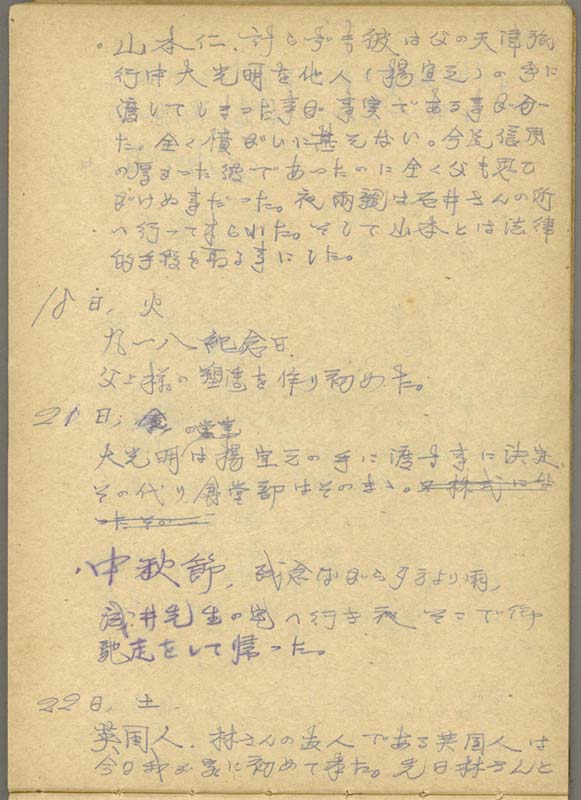 。山本仁、計らずも彼は父の天津旅
行中大光明を他人(揚宜之)の手に
渡してしまった事が事実である事が分っ
た。全く憤がいに甚えない。今迄信用
の厚かった彼であったのに全く父も思ひ
がけぬ事だった。夜両親は石井さんの所
へ行って来られた。そして山本とは法律
的手段を取る事にした。
18日、火
九一八紀念日
父上様の塑造を作り初めた。
21日、金
の営業
大光明は揚宜之の手に渡す事に決定、
その代り食堂部はそのまゝ。株式にな
ったその
中秋節、残念ながら夕方より雨、
浅井先生の宅へ行き夜そこで御
馳走をして帰った。
22日、土、
英国人、林さんの友人である英国人は
今日我が家に初めて来た。先日林さんと